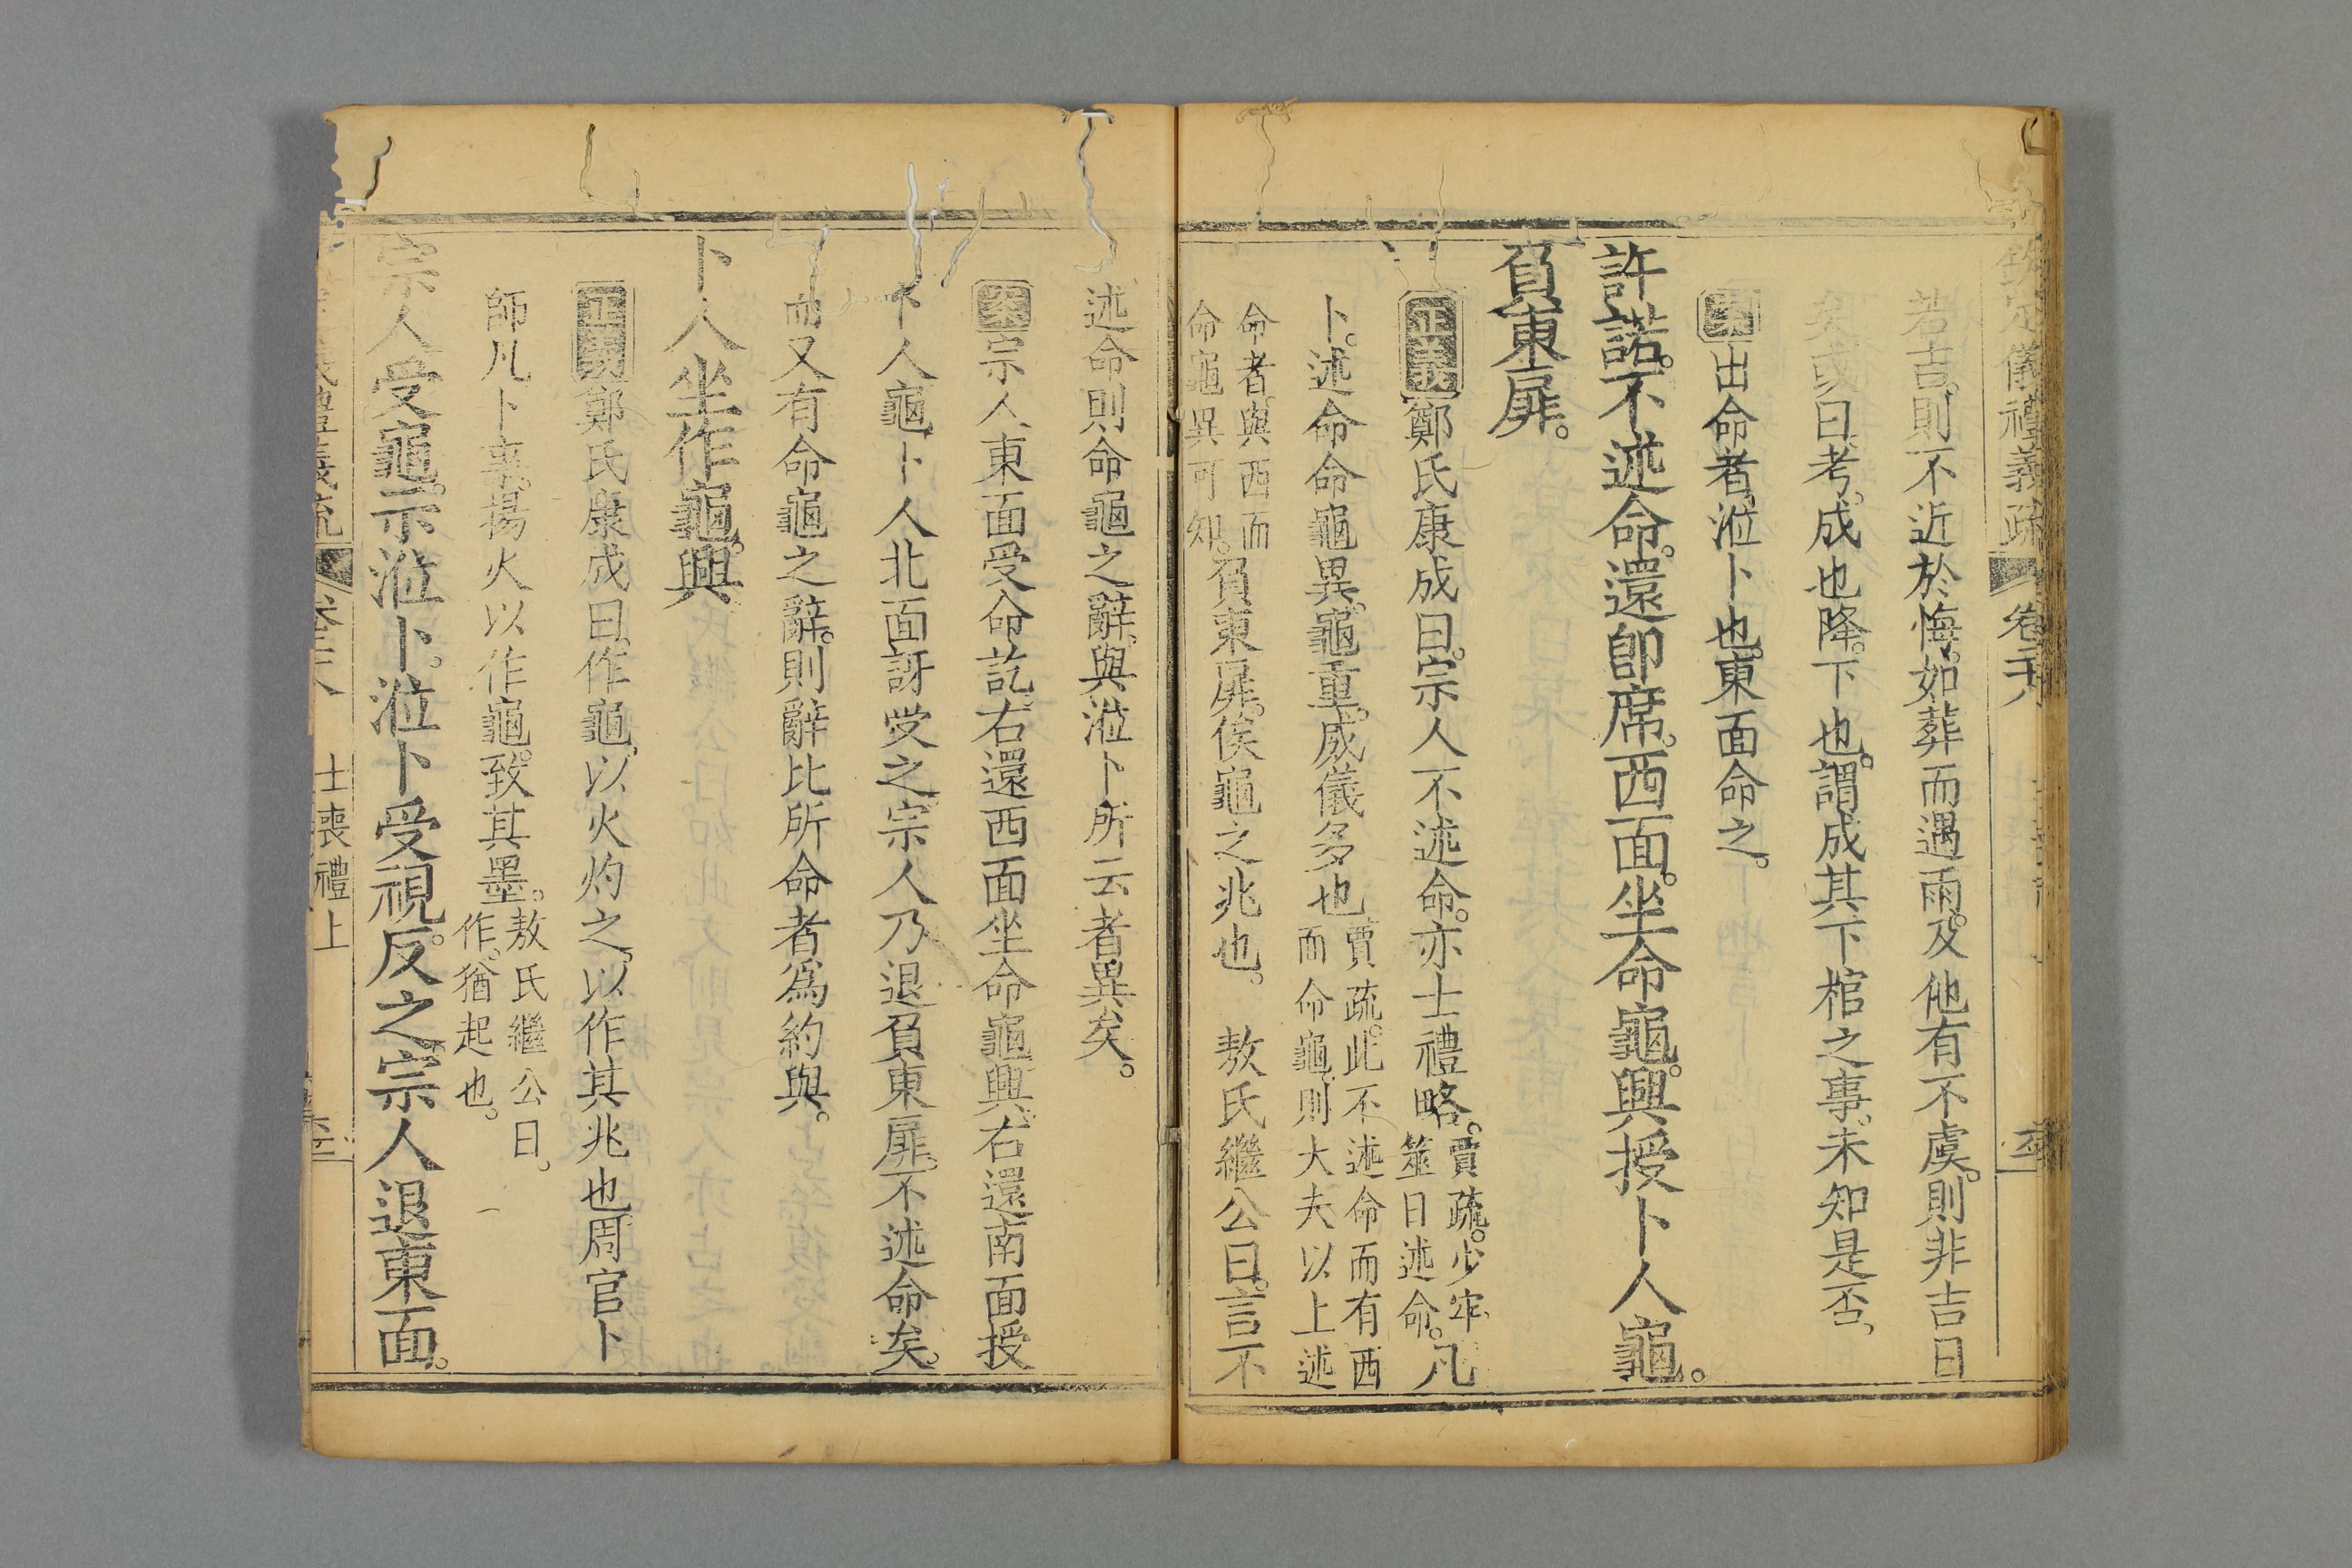 欽定儀禮義疏 卷二十八
若吉則不近於悔如葬而遇雨及他有不虞則非吉日
矣或曰考成也降下也謂成其下棺之事未知是否
案出命者涖卜也東面命之
許諾不述命還卽席西面坐命龜興授卜人龜
負東扉
正義鄭氏康成曰宗人不述命亦士禮略賈疏少牢筮日述命凡
卜述命命龜異龜重威儀多也賈疏此不述命而有西而命龜則大夫以上述
命者與西面命龜異可知負東扉俟龜之兆也 敖氏繼公曰言不
述命則命龜之辭與涖卜所云者異矣
案宗人東面受命訖右還西面坐命龜興右還南面授
卜人龜卜人北面訝受之宗人乃退負東扉不述命矣
而又有命龜之辭則辭比所命者爲約與
卜人坐作龜興
正義鄭氏康成曰作龜以火灼之以作其兆也周官卜
師凡卜事揚火以作龜致其墨敖氏繼公曰作猶起也
宗人受龜示涖卜涖卜受視反之宗人退東面
義疏 卷二十八 士喪禮上